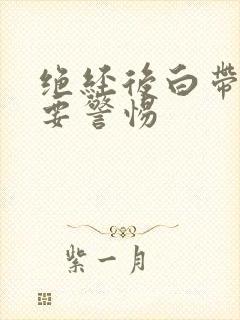 绝经後白带
要警惕
紫一月